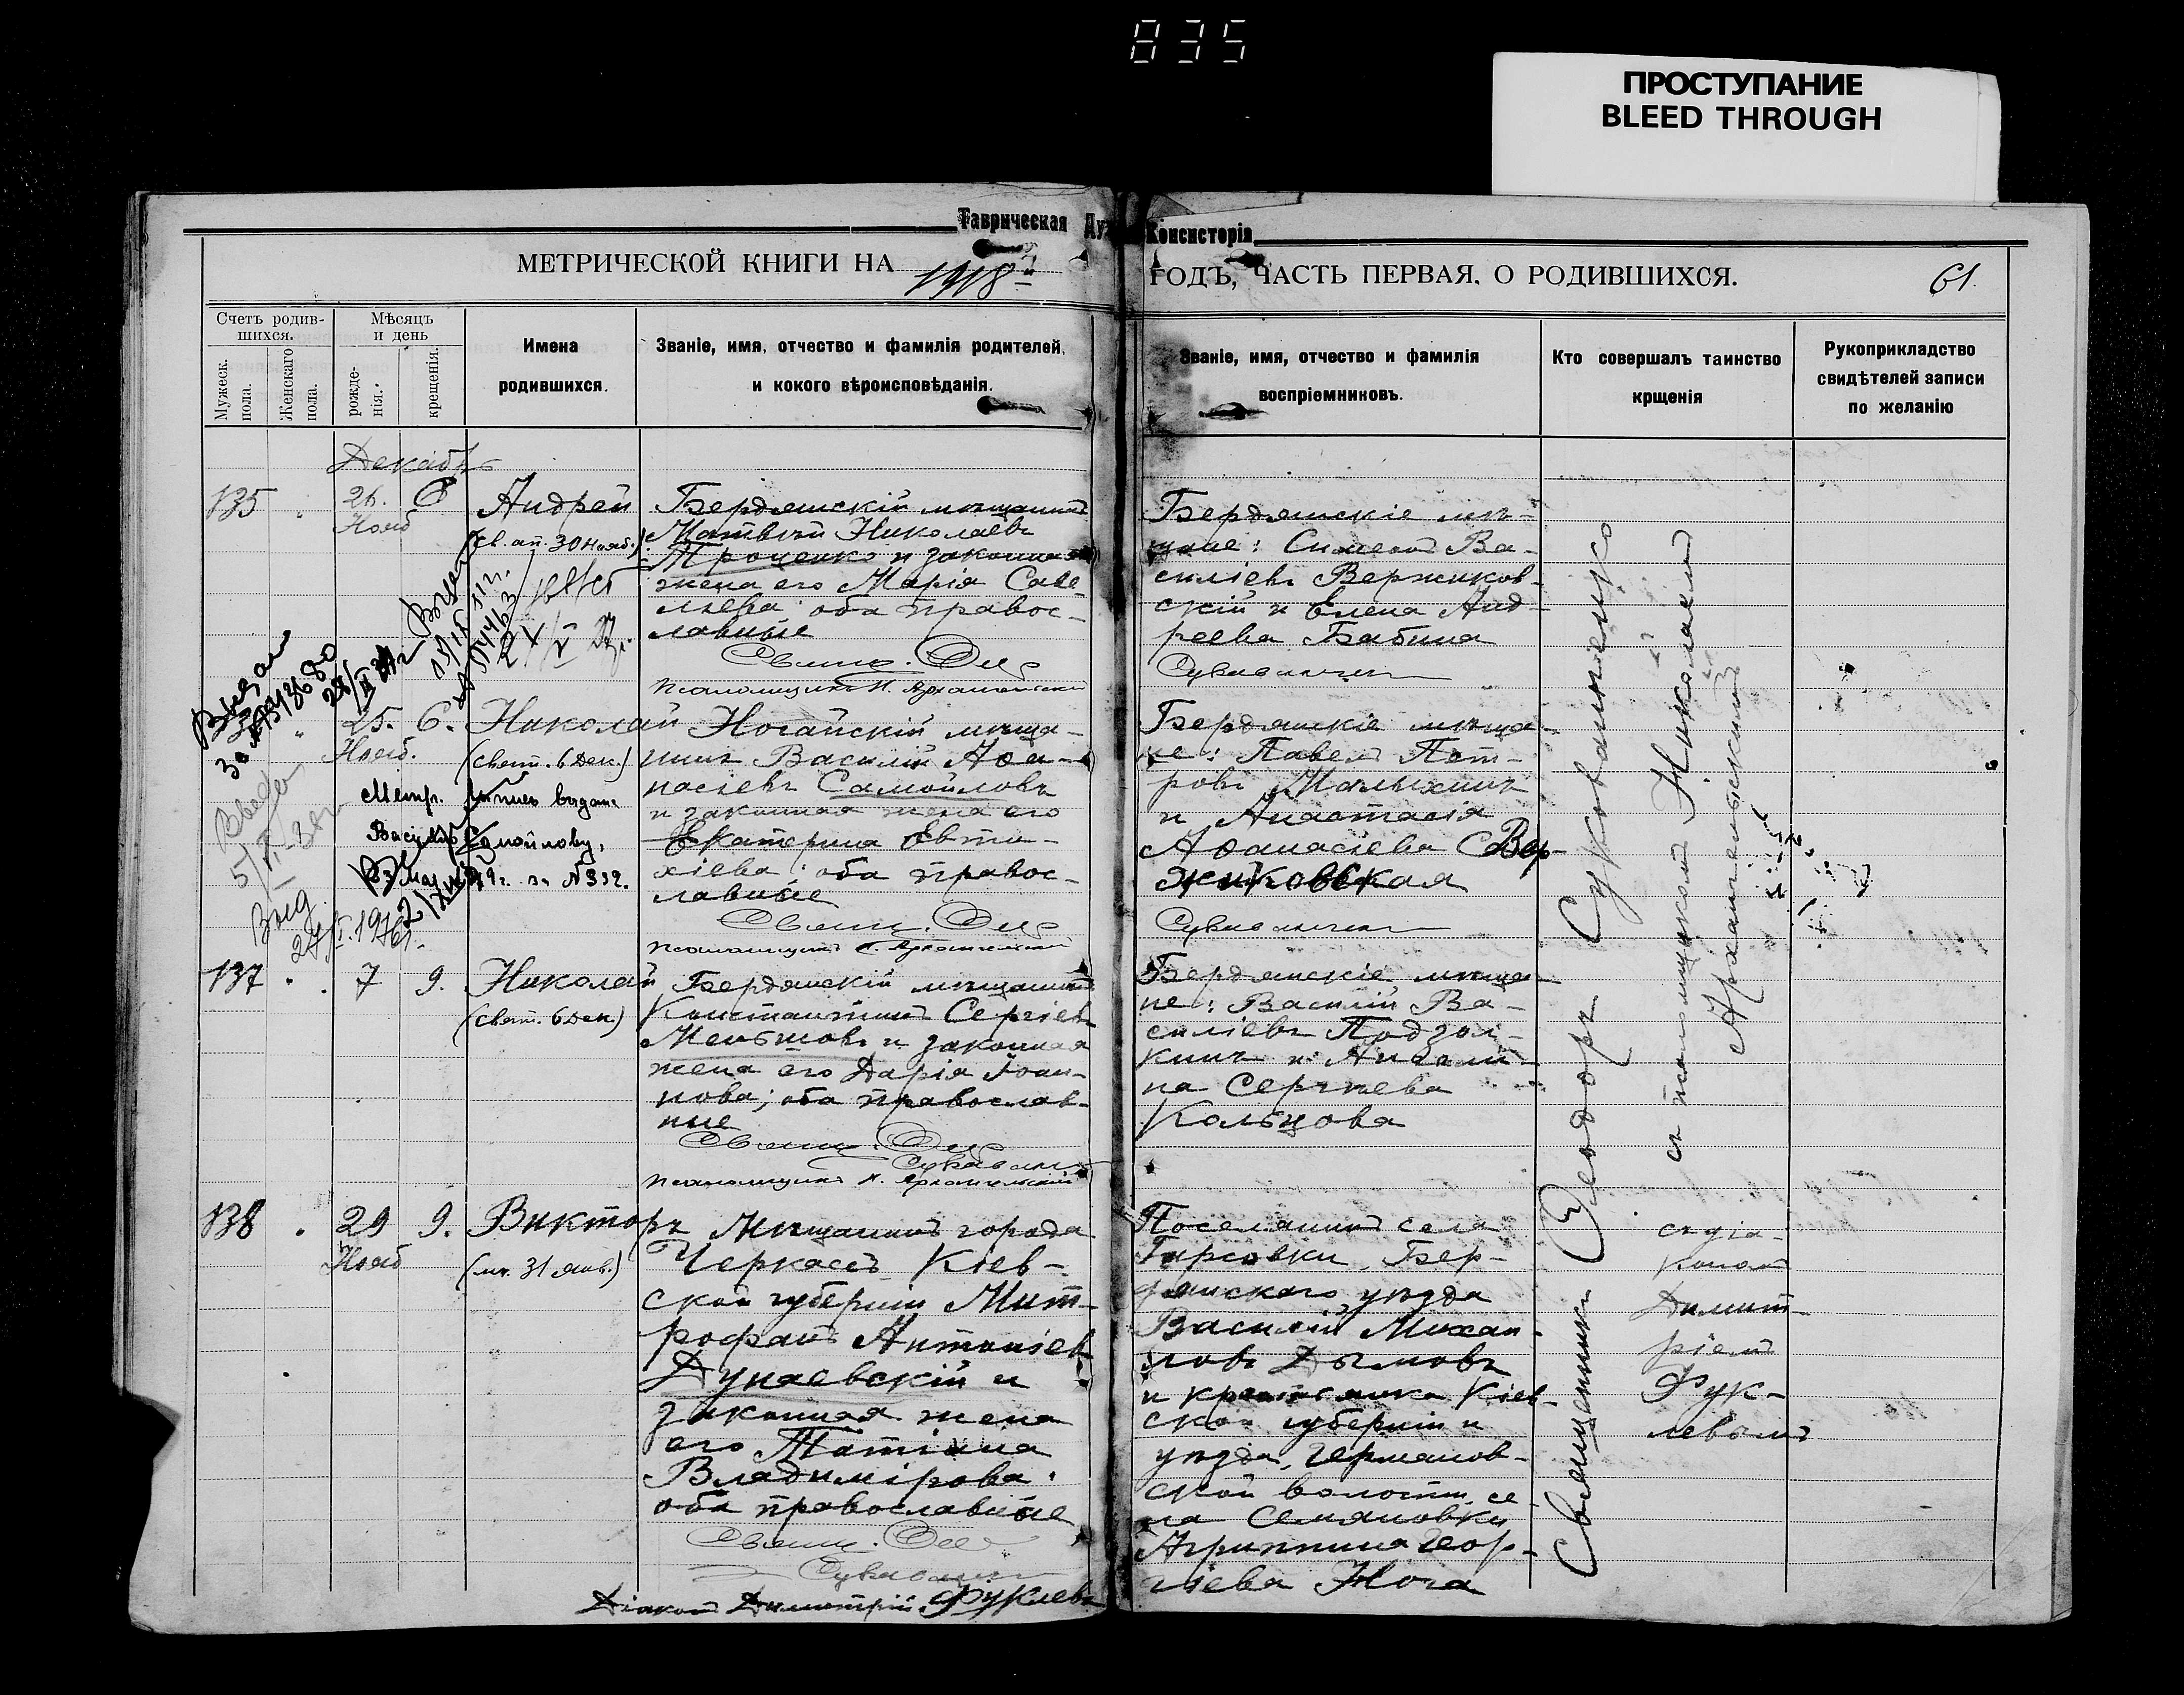 835
ПРОСТУПАНИЕ
BLEED THROUGH
Таврическая Ду
Консисторія
МЕТРИЧЕСКОЙ КНИГИ НА 1918
ГОДЪ, ЧАСТЬ ПЕРВАЯ, О РОДИВШИХСЯ.
61.
Счетъ родив-
шихся.
Мужеск. пола.
Женскаго пола.
Мѣсяцъ
и день
рожде-
нія.
крещенія.
Имена
родившихся.
Званіе, имя, отчество и фамилія родителей,
и кокого вѣроисповѣданія.
Званіе, имя, отчество и фамилія
воспріемниковъ.
Кто совершалъ таинство
крщенія
Рукоприкладство
свидѣтелей записи
по желанію
Декабрь
135
26.
Нояб
6
Андрей
(св. ап. 30 Нояб.)
Бердянскій мѣщанинъ
Матвѣй Николаевъ
Троценко и законная
жена его Марія Саве-
льева оба правос-
лавные
Свящ. Ѳео
Псаломщикъ Н. Архангельскій
Бердянскіе мѣ-
щане: Симеонъ Ва-
силіевъ Вержиков-
скій и Елена Анд-
реева Бабина
Сукованченко
25.
Нояб.
6.
Николай
(свят. 6 Дек.)
Метр. выпись выдана
Василію Самойлову,
за № 332.
Выд.
Ногайскій мѣща-
нинъ Василій Аѳа-
насіевъ Самойловъ
и законная жена его
Екатерина Евти-
хіева оба правос-
лавные
Свящ. Ѳео
Псаломщикъ Н. Архангельскій
Бердянскіе мѣща-
не: Павелъ Пет-
ровъ Малыхинъ
и Анастасія
Аѳанасіева Вер-
жиковская
Сукованченко
137
7
9.
Николай
(свят. 6 Дек.)
Бердянскій мѣщанинъ
Константинъ Сергіевъ
Меньшовъ и законная
жена его Дарія Іоан-
нова; оба православ-
ные
Свящ. Ѳео
Сукованченко
Псаломщикъ Н. Архангельскій
Бердянскіе мѣща-
не: Василій Ва-
силіевъ Подзол-
кинъ и
на Сергѣева
Кольцова
138
29
Нояб
9.
Викторъ
(мч. 31 янв.)
Мѣщанинъ города
Черкассъ Кіев-
ской губерніи Мит-
рофанъ Антоніевъ
Дунаевскій и
законная жена
его Татіана
Владимірова
оба православные
Свящ. Ѳео
Сукованченко
Діаконъ Димитрій Фуклевъ
Поселянинъ села
Гирсовки, Бер-
дянскаго уѣзда
Василій Михаи-
ловъ Дымовъ
и крестьянка Кіев-
ской губерніи и
уѣзда, Германов-
ской волости, се-
ла Семяновки
Агриппина Геор-
гіева Нога
Священникъ Ѳеодоръ Сукованченко
съ псаломщикомъ Николаемъ
Архангельскимъ
съ діа-
кономъ
Димит-
ріемъ
Фук-
левымъ